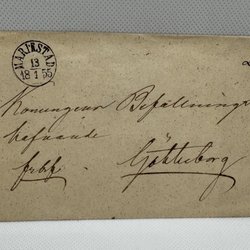 MARIESTAD
13
18 1 55
Konungens Befallnings
hafvande
Götheborg